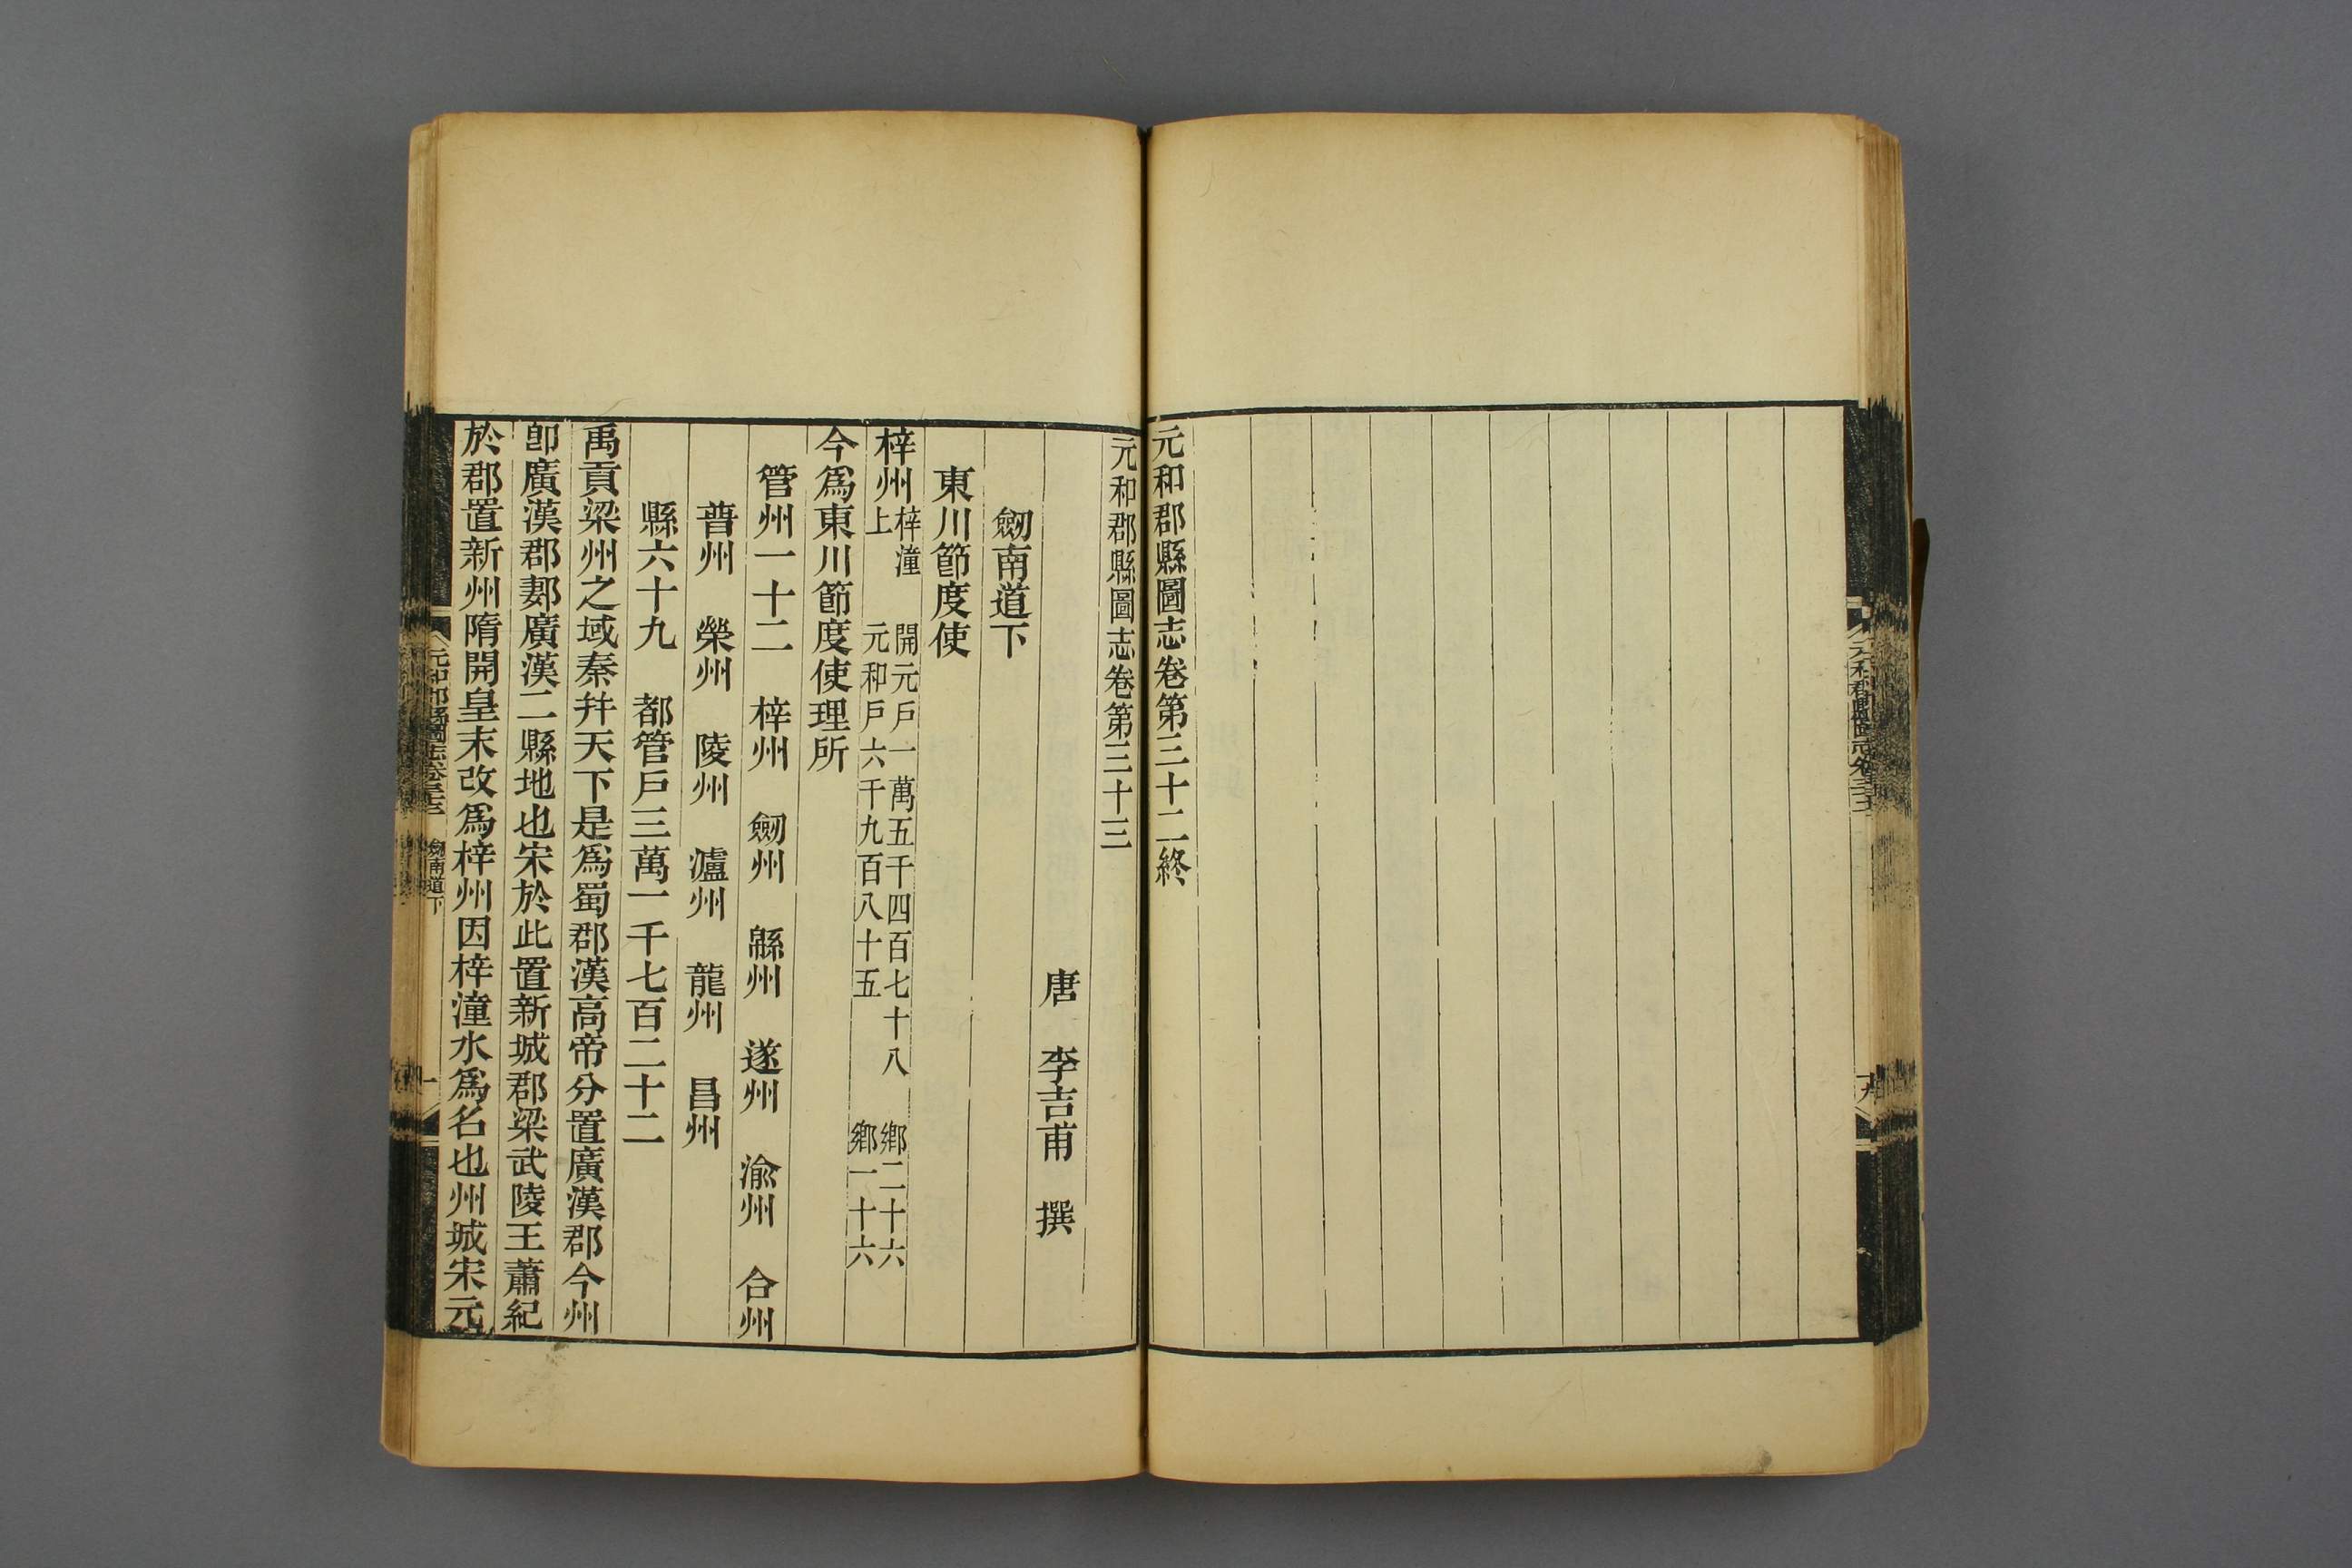 元和郡縣圖志卷第三十二終
元和郡縣圖志卷第三十三
唐　李吉甫　撰
劒南道下
東川節度使
梓州梓潼　開元戸一萬五千四百七十八　鄉二十六
上　元和戸六千九百八十五　鄉一十六
今爲東川節度使理所
管州一十二　梓州　劒州　緜州　遂州　渝州　合州
普州　榮州　陵州　瀘州　龍州　昌州
縣六十九　都管戸三萬一千七百二十二
禹貢梁州之域秦幷天下是爲蜀郡漢高帝分置廣漢郡今州
卽廣漢郡郪廣漢二縣地也宋於此置新城郡梁武陵王蕭紀
於郡置新州隋開皇末改爲梓州因梓潼水爲名也州城宋元
元和郡縣圖志卷三十三　劒南道下　一